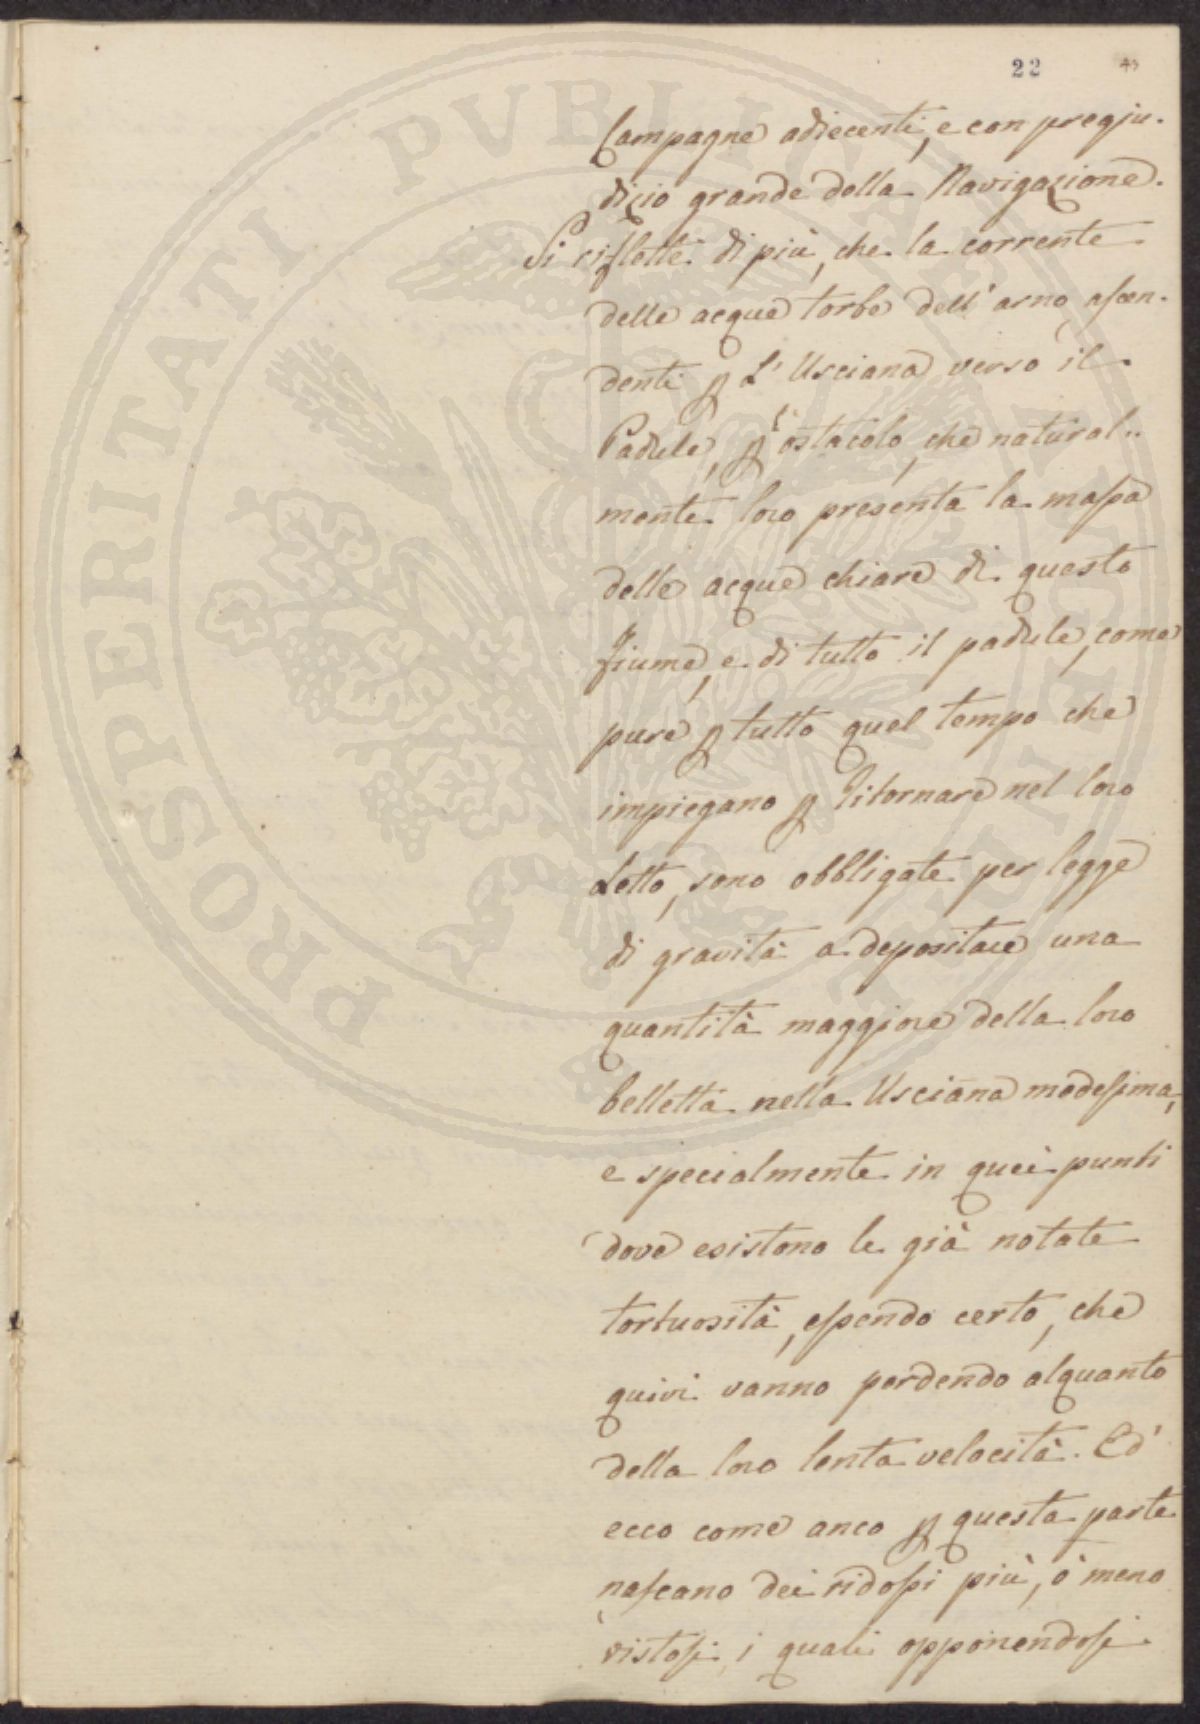 22
Campagne adiecenti, e con pregiu-
dizio grande della Navigazione.
Si riflette di più, che la corrente
delle acque torbe dell'arno ascen-
denti p L'Usciana verso il
Padule, p l'ostacolo, che natural-
mente loro presenta la massa
delle acque chiare di questo
fiume, e di tutto il padule, come
pure p tutto quel tempo che
impiegano p ritornare nel loro
Letto, sono obbligate per legge
di gravità a depositare una
quantità maggiore della loro
belletta nella Usciana medesima,
e specialmente in quei punti
dove esistono le già notate
tortuosità, essendo certo, che
quivi vanno perdendo alquanto
della loro lenta velocità. Ed
ecco come anco p questa parte
nascano dei ridossi più, ò meno
vistosi, i quali opponendosi
PROSPERITATI PVBLICAE AVGENDAE